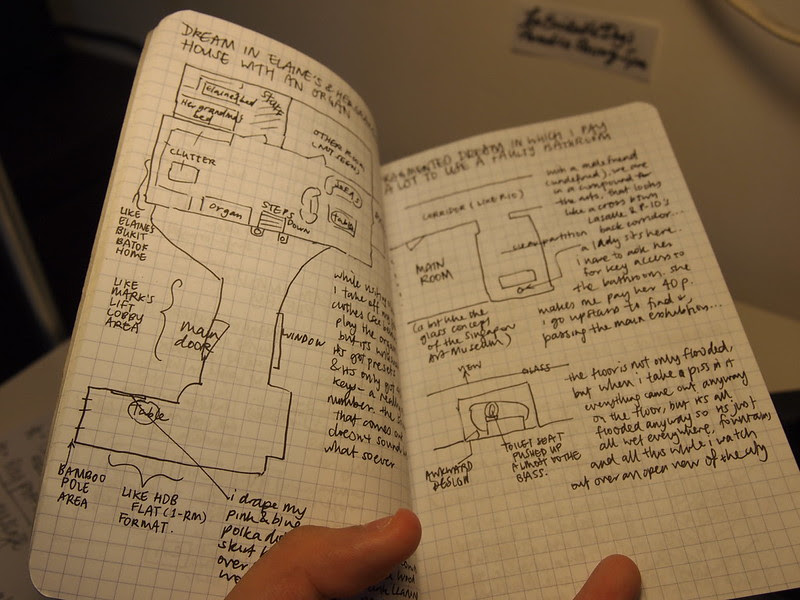 DREAM IN ELAINE'S & HER
HOUSE WITH AN ORGAN
Elaine's bed
Her grandma's
bed
STUFF
OTHER
CLUTTER
organ
STEPS
DOWN
Table
LIKE
ELAINE'S
BUKIT
BATOK
HOME
LIKE
MARK'S
LIFT
LOBBY
AREA
main
door
WINDOW
while
i take off
clothes
play the orga
but its
its got presets
& its only got
key - a really
number. the
that comes out
doesn't sound
what so ever
Table
BAMBOO
POLE
AREA
LIKE HDB
FLAT (1-RM)
FORMAT.
i drape my
pink & blue
polka do
skirt
over
FRAGMENTED DREAM IN WHICH I PAY
A LOT TO USE A FAULTY BATHROOM
CORRIDOR (LIKE P10)
MAIN
ROOM
partition
with a male friend
(undefined), we are
in a compound for
the arts, that looks
like a cross btwn
Lasalle & P-10's
back corridor...
a lady sits here.
i have to ask her
for key access to
the bathroom. she
makes me pay her 40p.
i go upstairs to find it
passing the main exhibition...
(a bit like the
glass concept
of the Singapore
Art Museum)
VIEW
GLASS
AWKWARD
DESIGN
TOILET SEAT
PUSHED UP
ALMOST TO THE
GLASS.
the floor is not only flooded,
but when i take a piss in it
everything came out anyway
on the floor, but its all
flooded anyway so its just
all wet everywhere, fountains
and all this while i watch
out over an open view of the city